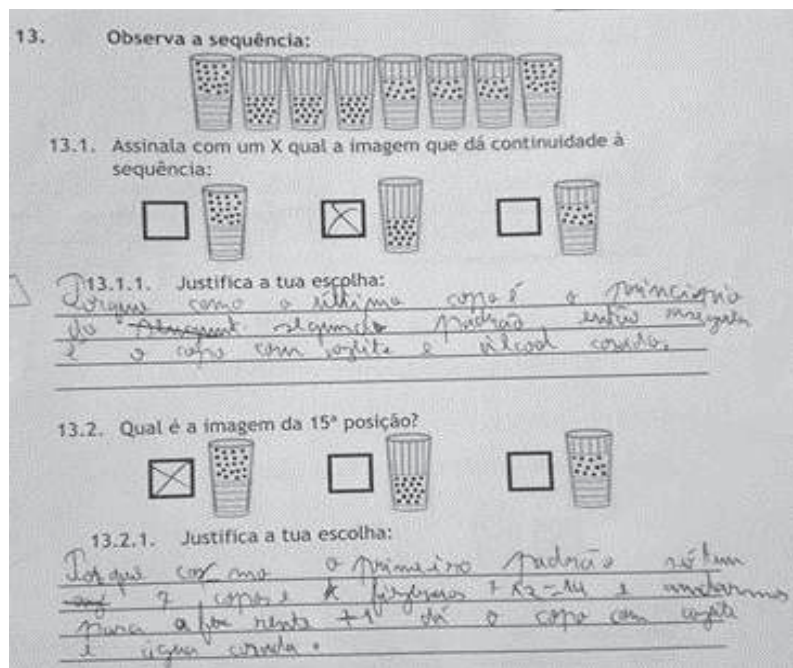 13. Observa a sequência:
13.1. Assinala com um X qual a imagem que dá continuidade à
sequência:
X
13.1.1. Justifica a tua escolha:
Porque como o último copo é o principio
do segundo padrão então
é o copo com azeite e álcool corado.
13.2. Qual é a imagem da 15ª posição?
X
13.2.1. Justifica a tua escolha:
Porque como o primeiro padrão só tem
7 copos e 7x2=14 e andarmos
para a frente +1 dá o copo com azeite
e água corada.